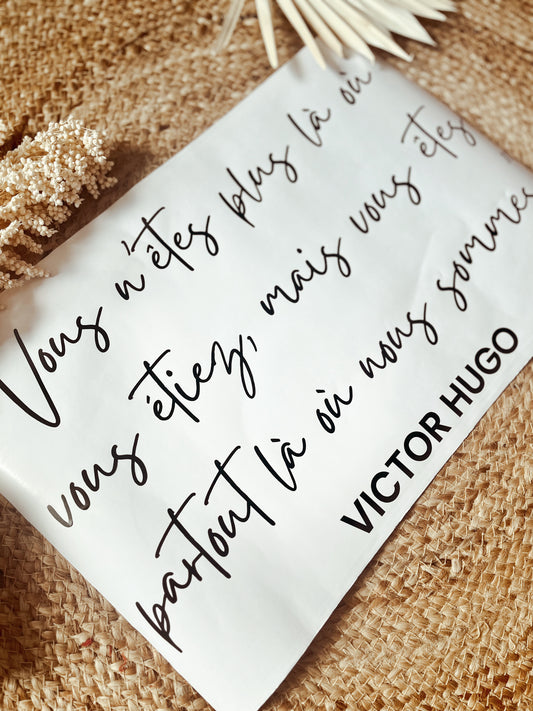 Vous n'êtes plus là où
vous étiez, mais vous êtes
partout là où nous sommes
VICTOR HUGO